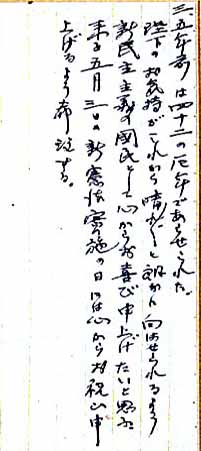 三、五年前は四十二の厄年であらせられた。
陛下のお気持がこれから晴れ〲と朗かに向はせられるよう
新民主主義の国民として心からお喜び申上げたいと思ふ
来る五月三日の新憲法実施の日には心からお祝い申
上げるよう希望する。